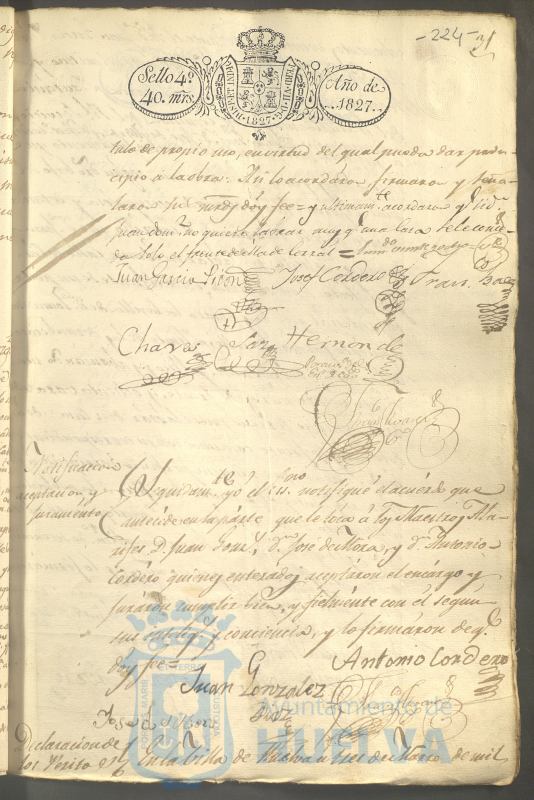 -224-
Sello 4º
40. mrs
HISP. ET IND. R. FERDIN. VII. D. G. 1827.
Año de
1827.
tulo de propio suyo, en virtud del qual pueda dar prin
cipio a la obra. Asi lo acordaron firmaron y seña
laron sus mrds doy fee = y ultimamte acordaron y
Juan Domz no quiere labrar mas q una casa se le conce
da solo el frente de la de Corral =
Juan Garcia Picon Josef Cordero Fran. Baez
Chaves Saz Hernandz
Notificacion
aceptacion y
juramento
Seguidamte yo el Esno notifiqué el acuerdo que
antecede en la parte que le toca á los Maestros Ala-
rifes D. Juan Gonz. Dn José de Mora, y Dn Antonio
Cordero quienes enterados aceptaron el encargo y
juraron cumplir bien, y fielmente con él segun
su saber y conciencia, y lo firmaron de q.
doy fee =
Juan Gonzalez
Antonio Cordero
Jose de Mora
Declaracion de
los Peritos
En la Villa de Huelva a tres de Marzo de mil
Ayuntamiento de
HUELVA